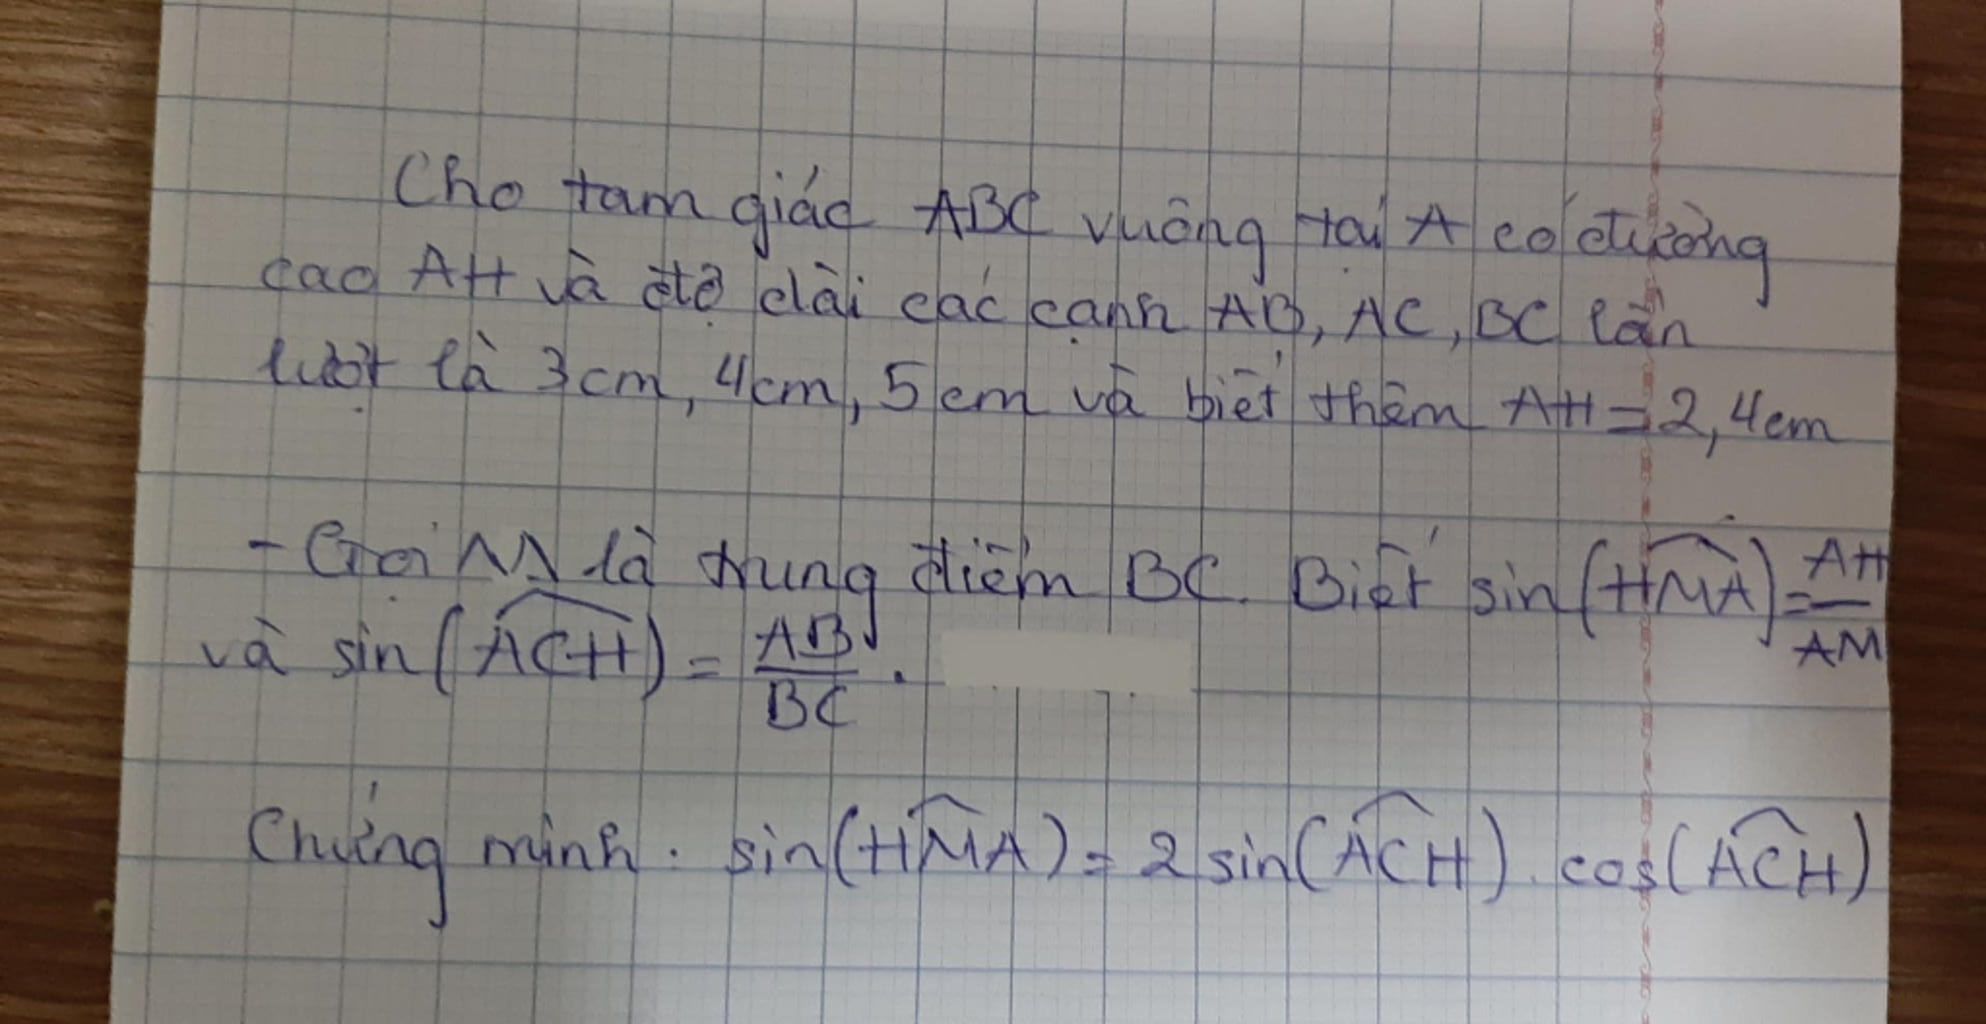 Cho tam giác ABC vuông tại A có đường
cao AH và độ dài các cạnh AB, AC, BC lần
lượt là 3cm, 4cm, 5cm và biết thêm AH=2,4cm
- Gọi M là trung điểm BC. Biết sin(HMA)=AH/AM
và sin(ACH)=AB/BC.
Chứng minh: sin(HMA)=2sin(ACH).cos(ACH)